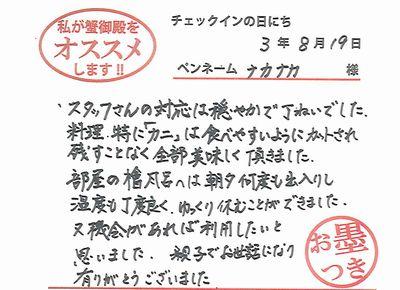 私が蟹御殿を
オススメ
します!!
チェックインの日にち
3年8月19日
ペンネーム ナカナカ 様
、スタッフさんの対応は穏やかで丁ねいでした。
料理、特に「カニ」は食べやすいようにカットされ
残すことなく全部美味しく頂きました。
部屋の檜風呂へは朝夕何度も出入りし
温度も丁度良く、ゆっくり休むことができました。
又機会があれば利用したいと
思いました。 親子でお世話になり
有りがとうございました
お墨
つき